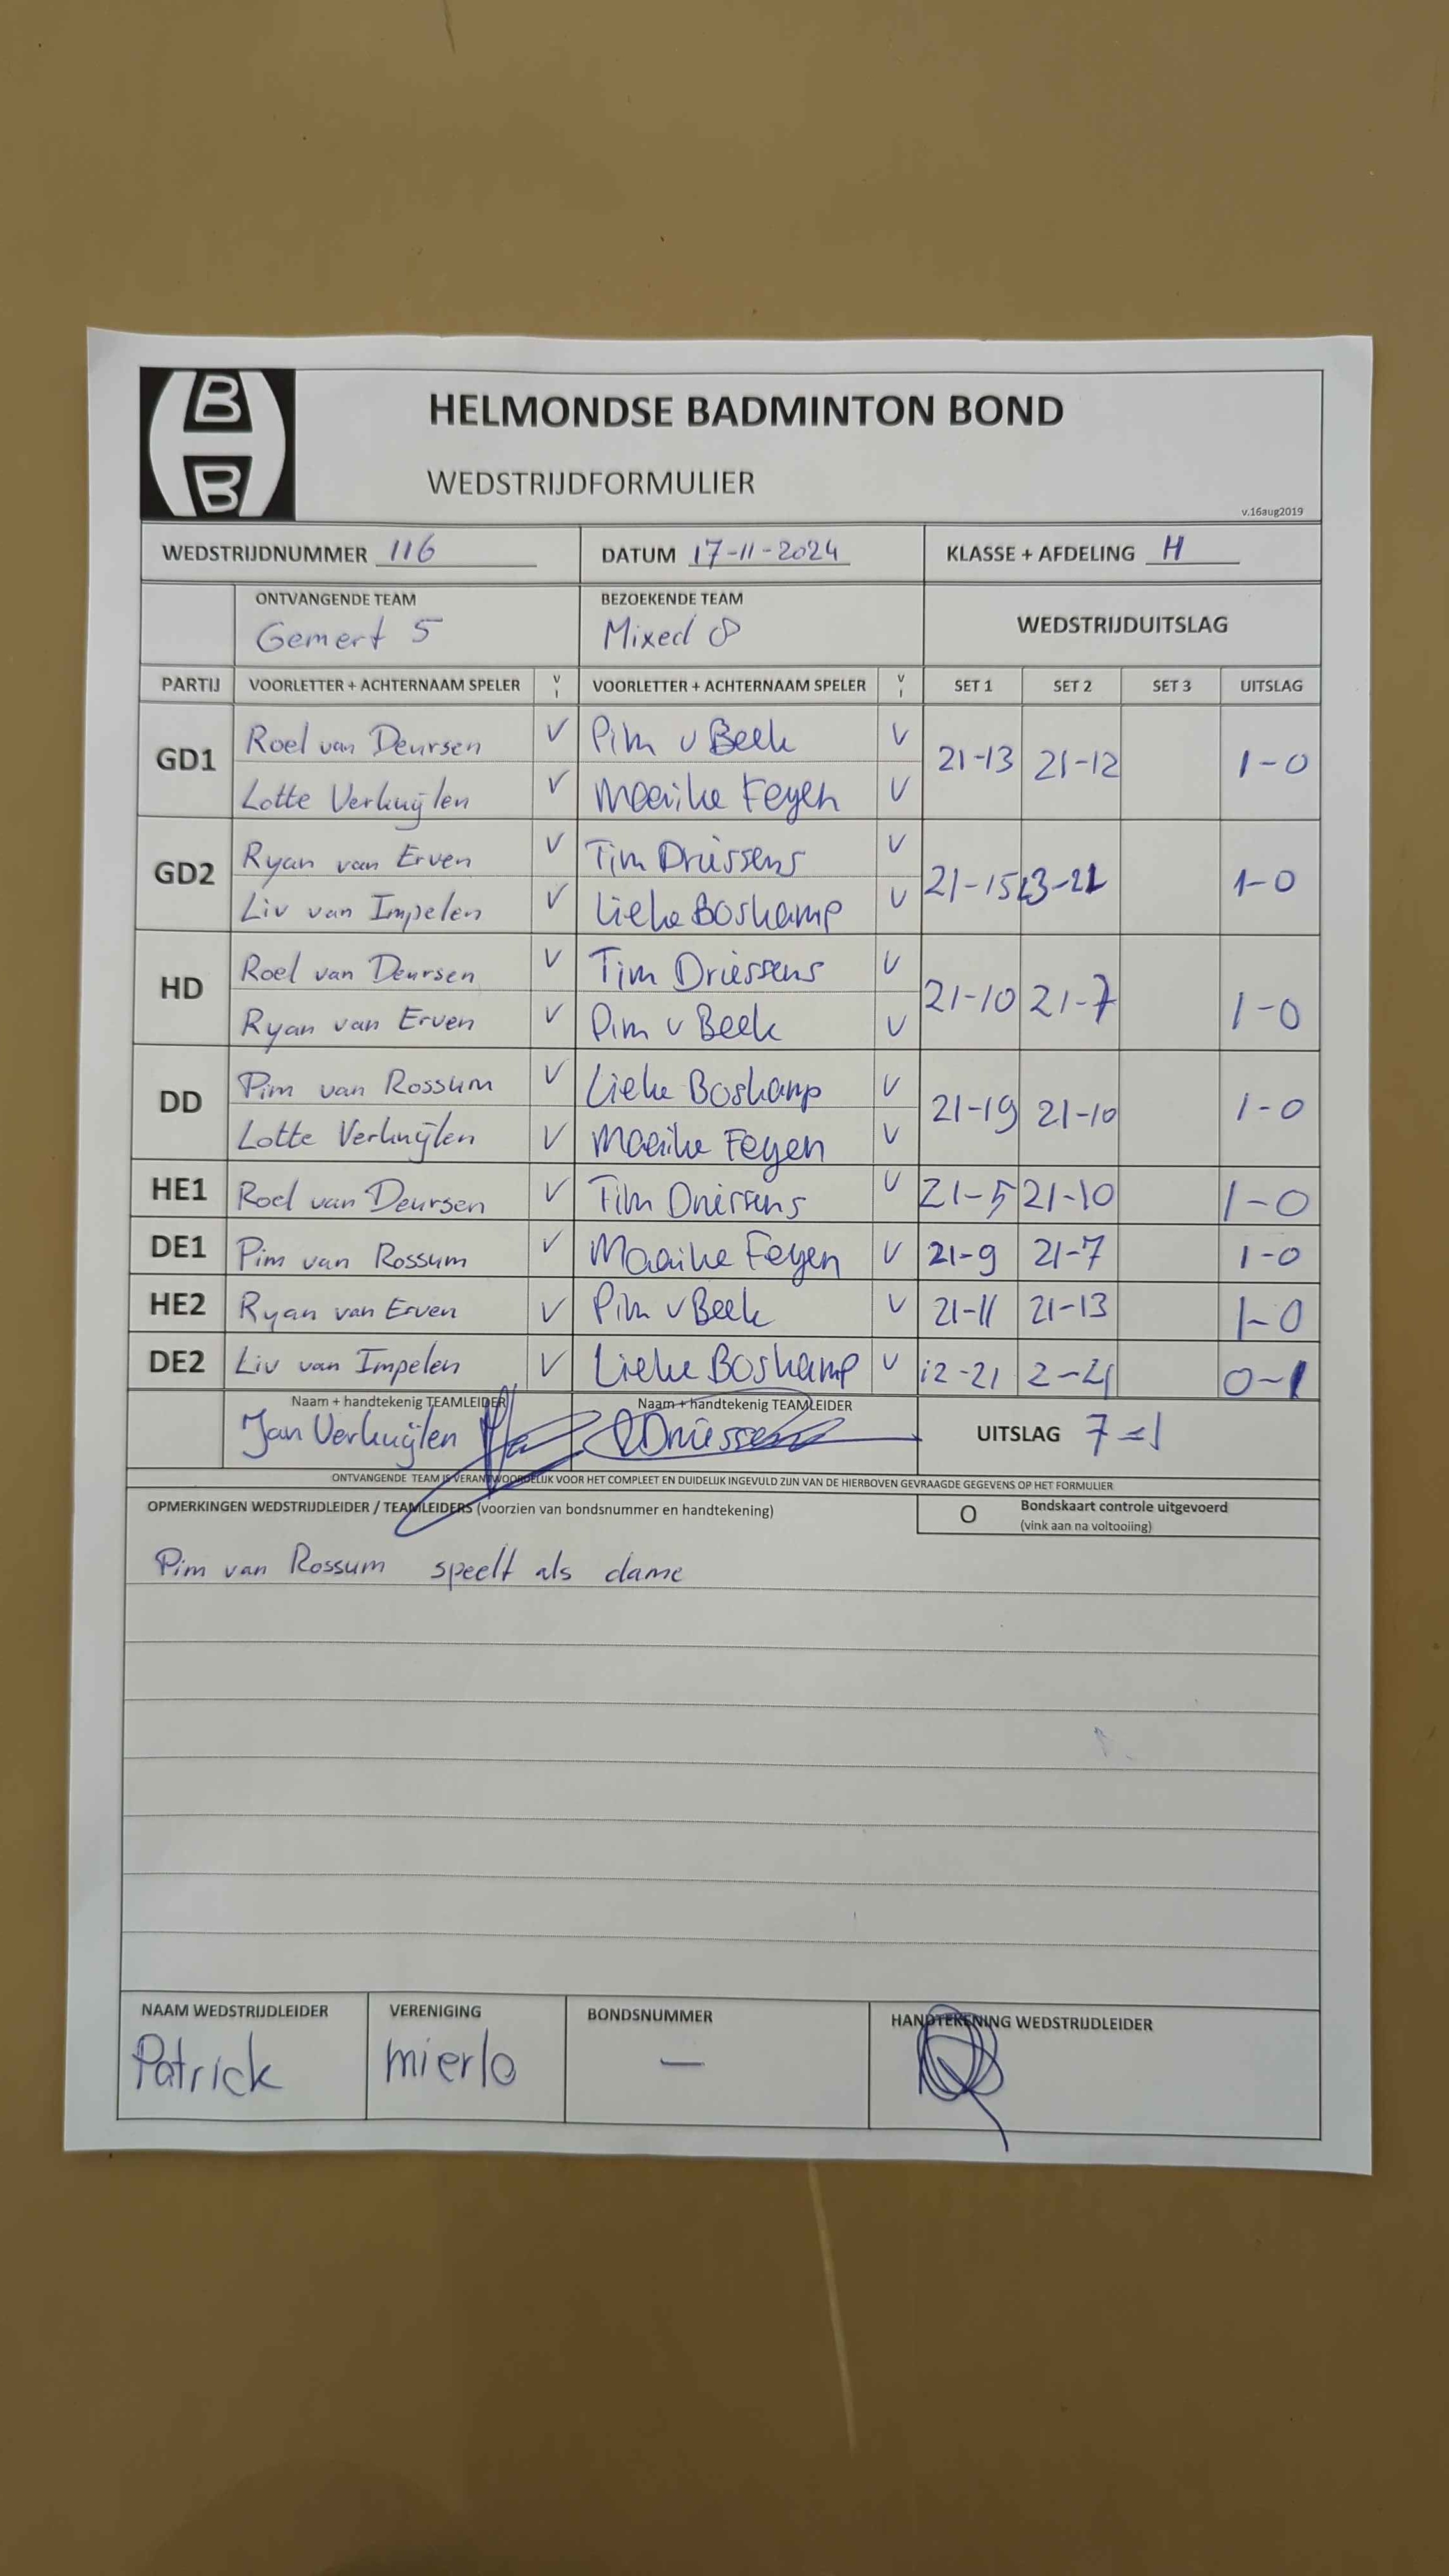 B
B
HELMONDSE BADMINTON BOND
WEDSTRIJDFORMULIER
v.16aug2019
WEDSTRIJDNUMMER 116 DATUM 17-11-2024 KLASSE + AFDELING H
ONTVANGENDE TEAM BEZOEKENDE TEAM
Gemert 5 Mixed 8 WEDSTRIJDUITSLAG
PARTIJ VOORLETTER + ACHTERNAAM SPELER V I VOORLETTER + ACHTERNAAM SPELER V I SET 1 SET 2 SET 3 UITSLAG
Roel van Deursen V Pim v Beek V
GD1 21-13 21-12 1-0
Lotte Verkuijlen V Maaike Feyen V
Ryan van Erven V Tim Driessens V
GD2 21-15 23-21 1-0
Liv van Impelen V Lieke Boskamp V
Roel van Deursen V Tim Driessens V
HD 21-10 21-7 1-0
Ryan van Erven V Pim v Beek V
Pim van Rossum V Lieke Boskamp V
DD 21-19 21-10 1-0
Lotte Verkuijlen V Maaike Feyen V
HE1 Roel van Deursen V Tim Driessens V 21-5 21-10 1-0
DE1 Pim van Rossum V Maaike Feyen V 21-9 21-7 1-0
HE2 Ryan van Erven V Pim v Beek V 21-11 21-13 1-0
DE2 Liv van Impelen V Lieke Boskamp V 12-21 2-21 0-1
Naam + handtekenig TEAMLEIDER Naam + handtekenig TEAMLEIDER
Jan Verkuijlen Driessens UITSLAG 7-1
ONTVANGENDE TEAM IS VERANTWOORDELIJK VOOR HET COMPLEET EN DUIDELIJK INGEVULD ZIJN VAN DE HIERBOVEN GEVRAAGDE GEGEVENS OP HET FORMULIER
OPMERKINGEN WEDSTRIJDLEIDER / TEAMLEIDERS (voorzien van bondsnummer en handtekening) O Bondskaart controle uitgevoerd
(vink aan na voltooiing)
Pim van Rossum speelt als dame
NAAM WEDSTRIJDLEIDER VERENIGING BONDSNUMMER HANDTEKENING WEDSTRIJDLEIDER
Patrick mierlo —